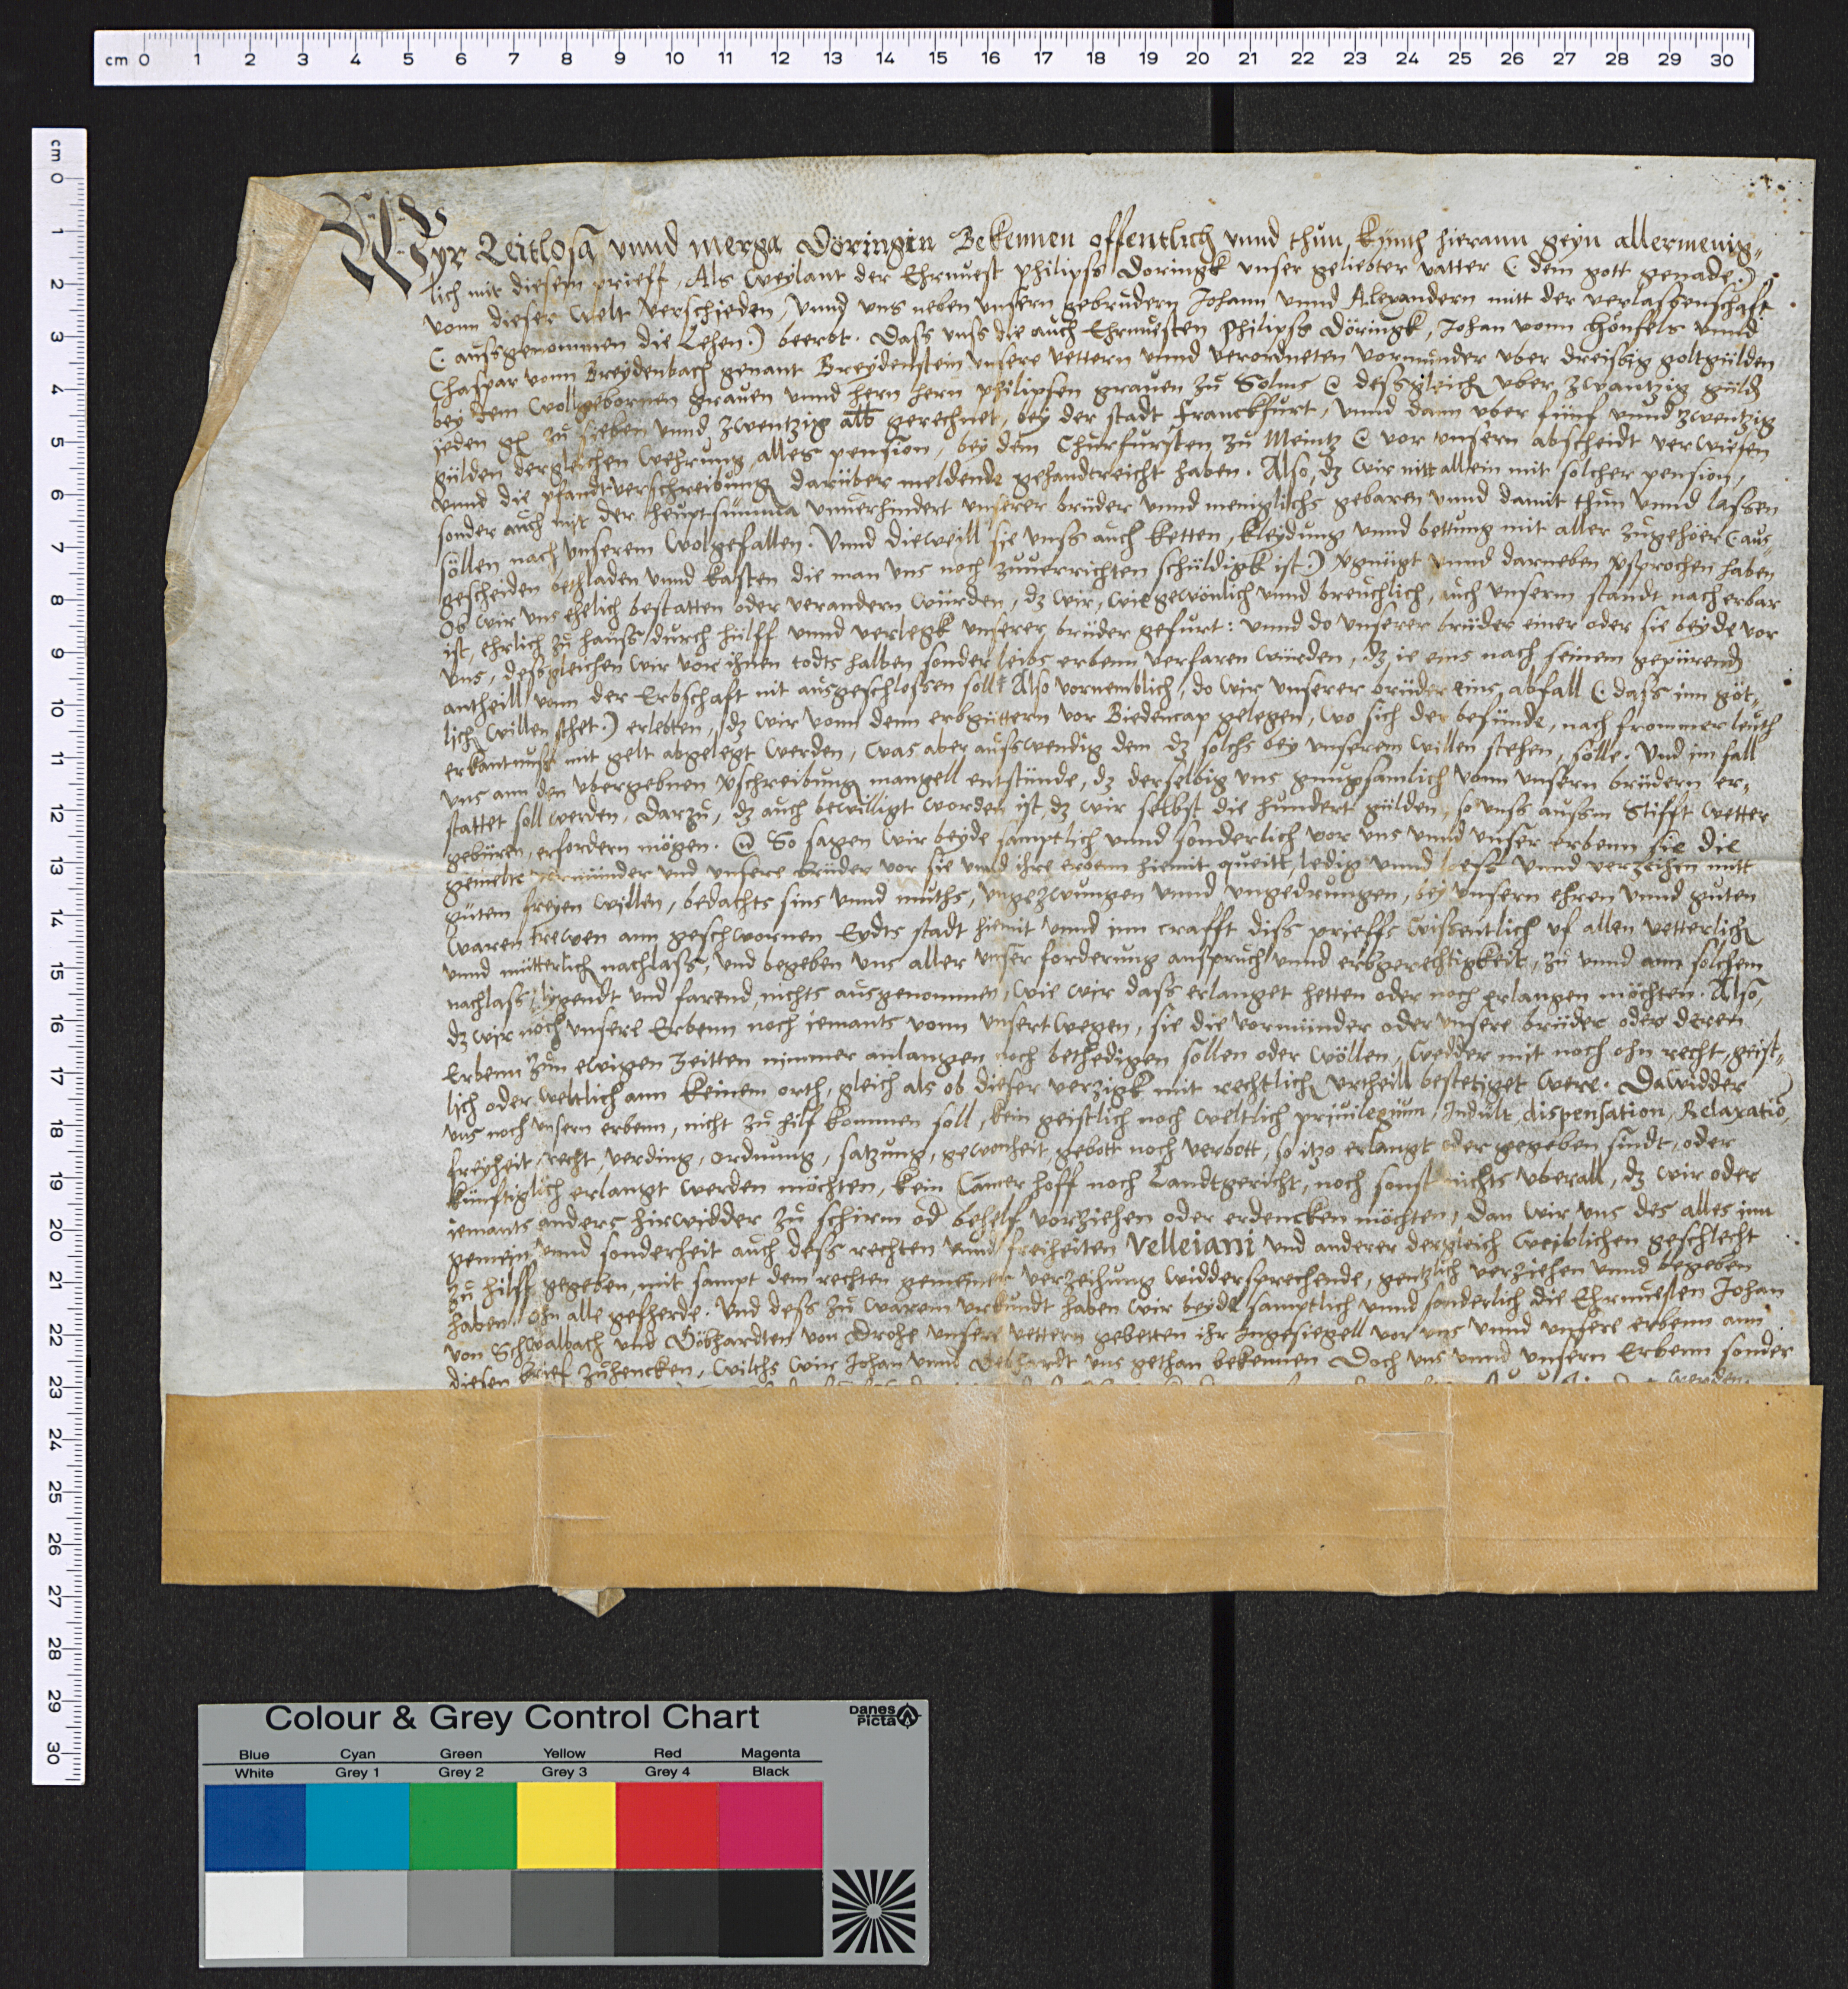 Wyr Zeitlosa vnnd Merga Döringin Bekennen offentlich vnnd thun kunth hierann geyn allermenig-
lich mit diesem prieff, Als weylant der Ehrnuest philips Doringk vnser geliebter vatter (: dem gott genade:)
vonn dieser welt verschieden, Vnnd vns neben vnsern gebrudern Johann vnnd Alexandern mitt der verlassenschaft
(: aussgenommen die Lehen:) beerbt. Dass vnss die auch Ehrnuesten Philipss Döringk, Johan vonn Hönfels vnnd
Chaspar vonn Breydenbach genant Breydenstein vnsere vettern vnnd verordneten vormunder vber dreissig goltgülden
bey dem wollgebornen grauen vnnd hern hern philipsen grauen zu Solms dessgleich vber zwantzig güld
jeden zu sieben vnnd zwentzig alb gerechnet, bey der stadt Franckfurt, vnnd dann vber fünf vnnd zwentzig
gülden dergleichen wehrung alles pension, bey dem Churfursten zu Meintz vor vnsern abscheidt verwiesen
vnnd die pfandtverschreibung darüber meldende gehandreicht haben. Also, dz wir nitt allein mit solcher pension,
sonder auch mit der heuptsumma vnuerhindert vnserer brüder vnnd meniglichs gebaren vnnd damit thun vnnd lassen
söllen nach vnserem wolgefallen. Vnnd dieweill sie vnss auch ketten, kleydung vnnd bettung mit aller zugehöer (: aus-
gescheiden bethladen vnnd kasten die man vns noch zuuerrichten schüldigk ist:) vgnügt vnnd darneben vsprochen haben
Ob wir vns ehelich bestatten oder verandern würden, dz wir, wie gewönlich vnnd breuchlich, auch vnserm standt nach erbar
ist, ehrlich zu hauss durch hülff vnnd verlegk vnserer brüder gefurt: vnnd do vnserer brüder einer oder sie beyde vor
vns, dessgleichen wir vor ihnen todts halben sonder leibs erbenn verfaren würden, dz ie eins nach seinem gepürend
antheill vonn der Erbschaft nit ausgeschlossen sollt Also vornemblich, do wir vnserer brüder eins abfall (: dass inn göt-
lich willen sthet:) erlebten, dz wir vonn denn erbguttern vor Biedencap gelegen, wo sich der befünde, nach frommer leuth
erkantnuss mit gelt abgelegt werden, was aber ausswendig dem dz solchs bey vnserem willen stehen, sölle. Vnd im fall
vns ann den vbergebnen vschreibung mangell entstünde, dz derselbig vns gnugsamlich vonn vnsern brüdern er-
stattet soll werden. Darzu, dz auch bewilligt worden ist, dz wir selbst die hundert gülden, so vnss aussm Stifft wetter
gebüren, erfordern mögen. So sagen wir beyde samptlich vnnd sonderlich vor vns vnnd vnser erbenn sie die
gemelte vormünder vnd vnsere brüder vor sie vnnd ihre erbenn hiemit queitt, ledig vnnd loess vnnd verzeihen mitt
gütem freyen willen, bedachts sins vnnd muths, vngezwungen vnnd vngedrungen, bey vnsern ehren vnnd guten
waren trewen ann geschwornen Eydts stadt hiemit vnnd inn crafft diss prieffs wissentlich vf allen vetterlich
vnnd mütterlich nachlass, vnd begeben vns aller vnser forderung anspruch vnnd erbgerechtigkeit, zu vnnd ann solchem
nachlass, ligendt vnd farend, nichts ausgenommen, wie wir dass erlanget hetten oder noch erlangen möchten. Also,
dz wir noch vnsere Erbenn noch iemants vonn vnsertwegen, sie die vormünder oder vnsere brüder oder deren
Erbenn zun ewigen zeitten nimmer anlangen noch bethedigen sollen oder wöllen, wedder mit noch ohn recht, geist-
lich oder weltlich ann keinem orth, gleich als ob dieser verzigk mit rechtlich vrtheill bestetiget were. Dawidder
vns noch vnsern erbenn, nicht zu hilf kommen soll, kein geistlich noch weltlich priuilegium, Indult, dispensation, Relaxatio,
freyheit, recht, verding, ordnung, satzung, gewonheit, gebott noch verbott, so itzo erlangt oder gegeben sindt, oder
künftiglich erlangt werden möchten, kein Camer hoff noch Landtgericht, noch sonst nichts vberall, dz wir oder
iemants anders hirwidder zu schirm od behelf vorziehen oder erdencken möchten, dan wir vns des alles inn
gemein vnnd sonderheit auch dess rechten vnnd freiheiten Velleiani vnd anderer dergleich weiblichen geschlecht
zu hilff gegeben, mit sampt dem rechten gemeiner verzeihung widdersprechende, gentzlich verziehen vnnd begeben
haben, ohn alle geferde. Vnd dess zu warem vrkundt haben wir beyde samptlich vnnd sonderlich die Ehrnuesten Johan
von Schwalbach vnd Döbhardten von Drohe vnsere vettern gebetten ihr Ingesiegell vor vns vnnd vnsere erbenn ann
diesen brief zuhencken, wilchs wir Johan vnnd Debhardt vns gethan bekennen Doch vns vnnd vnsern Erbenn sonder
cm 0 1 2 3 4 5 6 7 8 9 10 11 12 13 14 15 16 17 18 19 20 21 22 23 24 25 26 27 28 29 30
cm 0 1 2 3 4 5 6 7 8 9 10 11 12 13 14 15 16 17 18 19 20 21 22 23 24 25 26 27 28 29 30
Colour & Grey Control Chart
Danes Picta
Blue Cyan Green Yellow Red Magenta
White Grey 1 Grey 2 Grey 3 Grey 4 Black